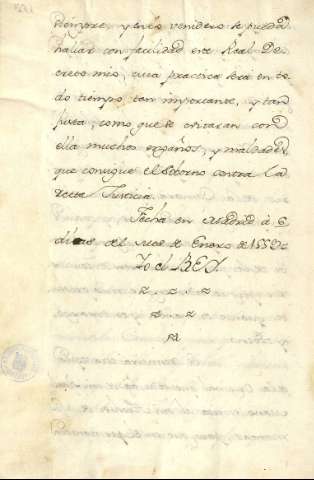 siempre, y en lo venidero se pueda
hallar con facilidad este Real De-
creto mio, cuia practica sera en to
do tiempo tan importante, y tan
justa, como que se evitaran con
ella muchos engaños, y maldades
que consigue el soborno contra la
recta Justicia.
Fecha en Madrid à 6
dias del mes de Enero de
Yo el REY.